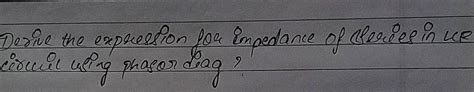 Derive the expression for impedance of series in
circuit using phasor diag ?